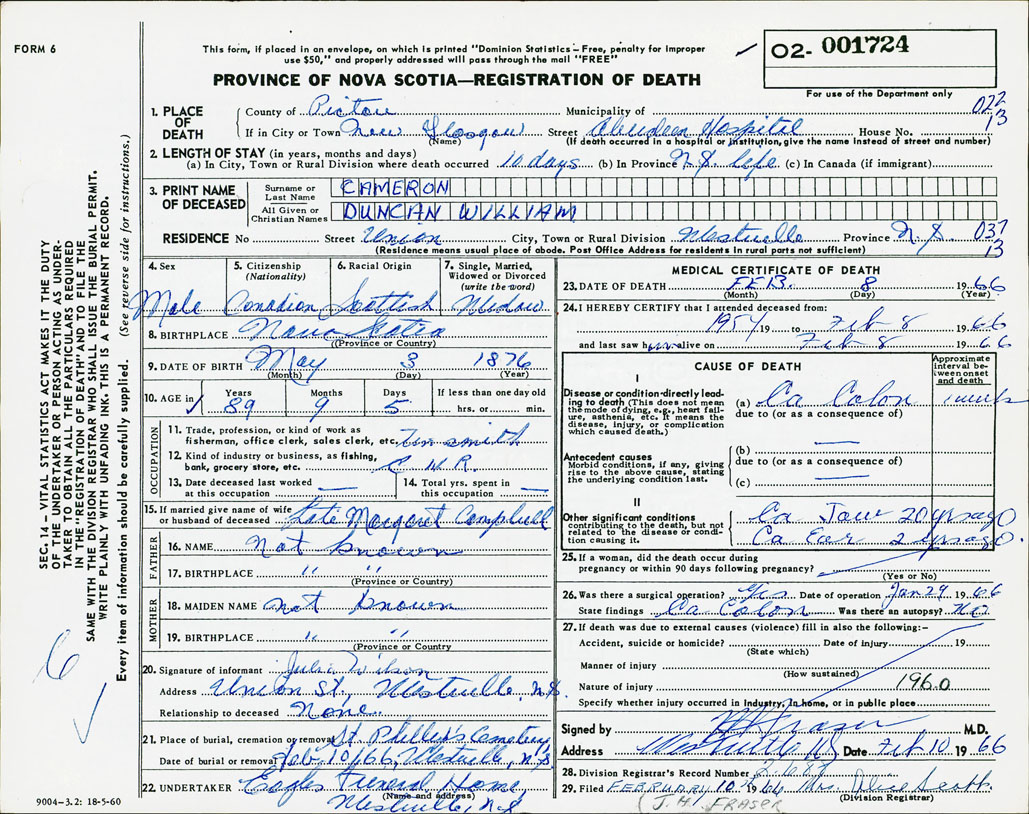 FORM 6
This form, if placed in an envelope, on which is printed "Dominion Statistics – Free, penalty for improper
use $50," and properly addressed will pass through the mail "FREE"
PROVINCE OF NOVA SCOTIA—REGISTRATION OF DEATH
O2- 001724
For use of the Department only
1. PLACE OF DEATH
County of Pictou Municipality of 022
If in City or Town New Glasgow Street Aberdeen Hospital House No. 13
(Name) (If death occurred in a hospital or institution, give the name instead of street and number)
2. LENGTH OF STAY (in years, months and days)
(a) In City, Town or Rural Division where death occurred 10 days (b) In Province N.S. life (c) In Canada (if immigrant)
3. PRINT NAME OF DECEASED
Surname or Last Name CAMERON
All Given or Christian Names DUNCAN WILLIAM
RESIDENCE No Street Union City, Town or Rural Division Westville Province N.S 037
13
(Residence means usual place of abode. Post Office Address for residents in rural parts not sufficient)
4. Sex 5. Citizenship (Nationality) 6. Racial Origin 7. Single, Married, Widowed or Divorced (write the word)
Male Canadian Scottish Widow
8. BIRTHPLACE Nova Scotia
(Province or Country)
9. DATE OF BIRTH May 3 1876
(Month) (Day) (Year)
10. AGE in Years Months Days If less than one day old
89 9 5 hrs. or min.
OCCUPATION
11. Trade, profession, or kind of work as
fisherman, office clerk, sales clerk, etc. Tinsmith
12. Kind of industry or business, as fishing,
bank, grocery store, etc. C.N.R.
13. Date deceased last worked at this occupation —
14. Total yrs. spent in this occupation —
15. If married give name of wife
or husband of deceased Late Margaret Campbell
FATHER
16. NAME Not known
17. BIRTHPLACE " "
(Province or Country)
MOTHER
18. MAIDEN NAME not known
19. BIRTHPLACE " "
(Province or Country)
20. Signature of informant Julia Wilson
Address Union St., Westville, N.S.
Relationship to deceased None
21. Place of burial, cremation or removal St. Phillip's Cemetery
Date of burial or removal Feb. 10/66, Westville, N.S
22. UNDERTAKER Eagles Funeral Home
(Name and address)
Westville, N.S
MEDICAL CERTIFICATE OF DEATH
23. DATE OF DEATH FEB. 8 1966
(Month) (Day) (Year)
24. I HEREBY CERTIFY that I attended deceased from:
1957 19 to Feb 8 1966
and last saw him alive on Feb 8 1966
CAUSE OF DEATH
Approximate interval between onset and death
I
Disease or condition directly leading to death (This does not mean the mode of dying, e.g., heart failure, asthenia, etc. It means the disease, injury, or complication which caused death.)
(a) Ca Colon
due to (or as a consequence of)
—
Antecedent causes
Morbid conditions, if any, giving rise to the above cause, stating the underlying condition last.
(b)
due to (or as a consequence of)
(c) —
II
Other significant conditions
contributing to the death, but not related to the disease or condition causing it.
Ca Jaw 20 yrs ago
Ca Ear yrs ago.
25. If a woman, did the death occur during
pregnancy or within 90 days following pregnancy?
(Yes or No)
26. Was there a surgical operation? Yes Date of operation Jan 29 1966
State findings Ca Colon Was there an autopsy? No
27. If death was due to external causes (violence) fill in also the following:–
Accident, suicide or homicide? Date of injury 19
(State which)
Manner of injury
(How sustained)
Nature of injury 196.0
Specify whether injury occurred in Industry, In home, or in public place
Signed by Fraser M.D.
Address Westville NS Date Feb 10 1966
28. Division Registrar's Record Number
29. Filed FEBRUARY 10 1966 Mrs. Alice Scott
(Division Registrar)
(J. H. FRASER
9004–3.2: 18-5-60
SEC. 14 – VITAL STATISTICS ACT MAKES IT THE DUTY
OF THE UNDERTAKER OR PERSON ACTING AS UNDERTAKER
TO OBTAIN ALL THE PARTICULARS REQUIRED
IN THE "REGISTRATION OF DEATH" AND TO FILE THE
SAME WITH THE DIVISION REGISTRAR WHO SHALL ISSUE THE BURIAL PERMIT.
WRITE PLAINLY WITH UNFADING INK. THIS IS A PERMANENT RECORD.
Every item of information should be carefully supplied. (See reverse side for instructions.)
6